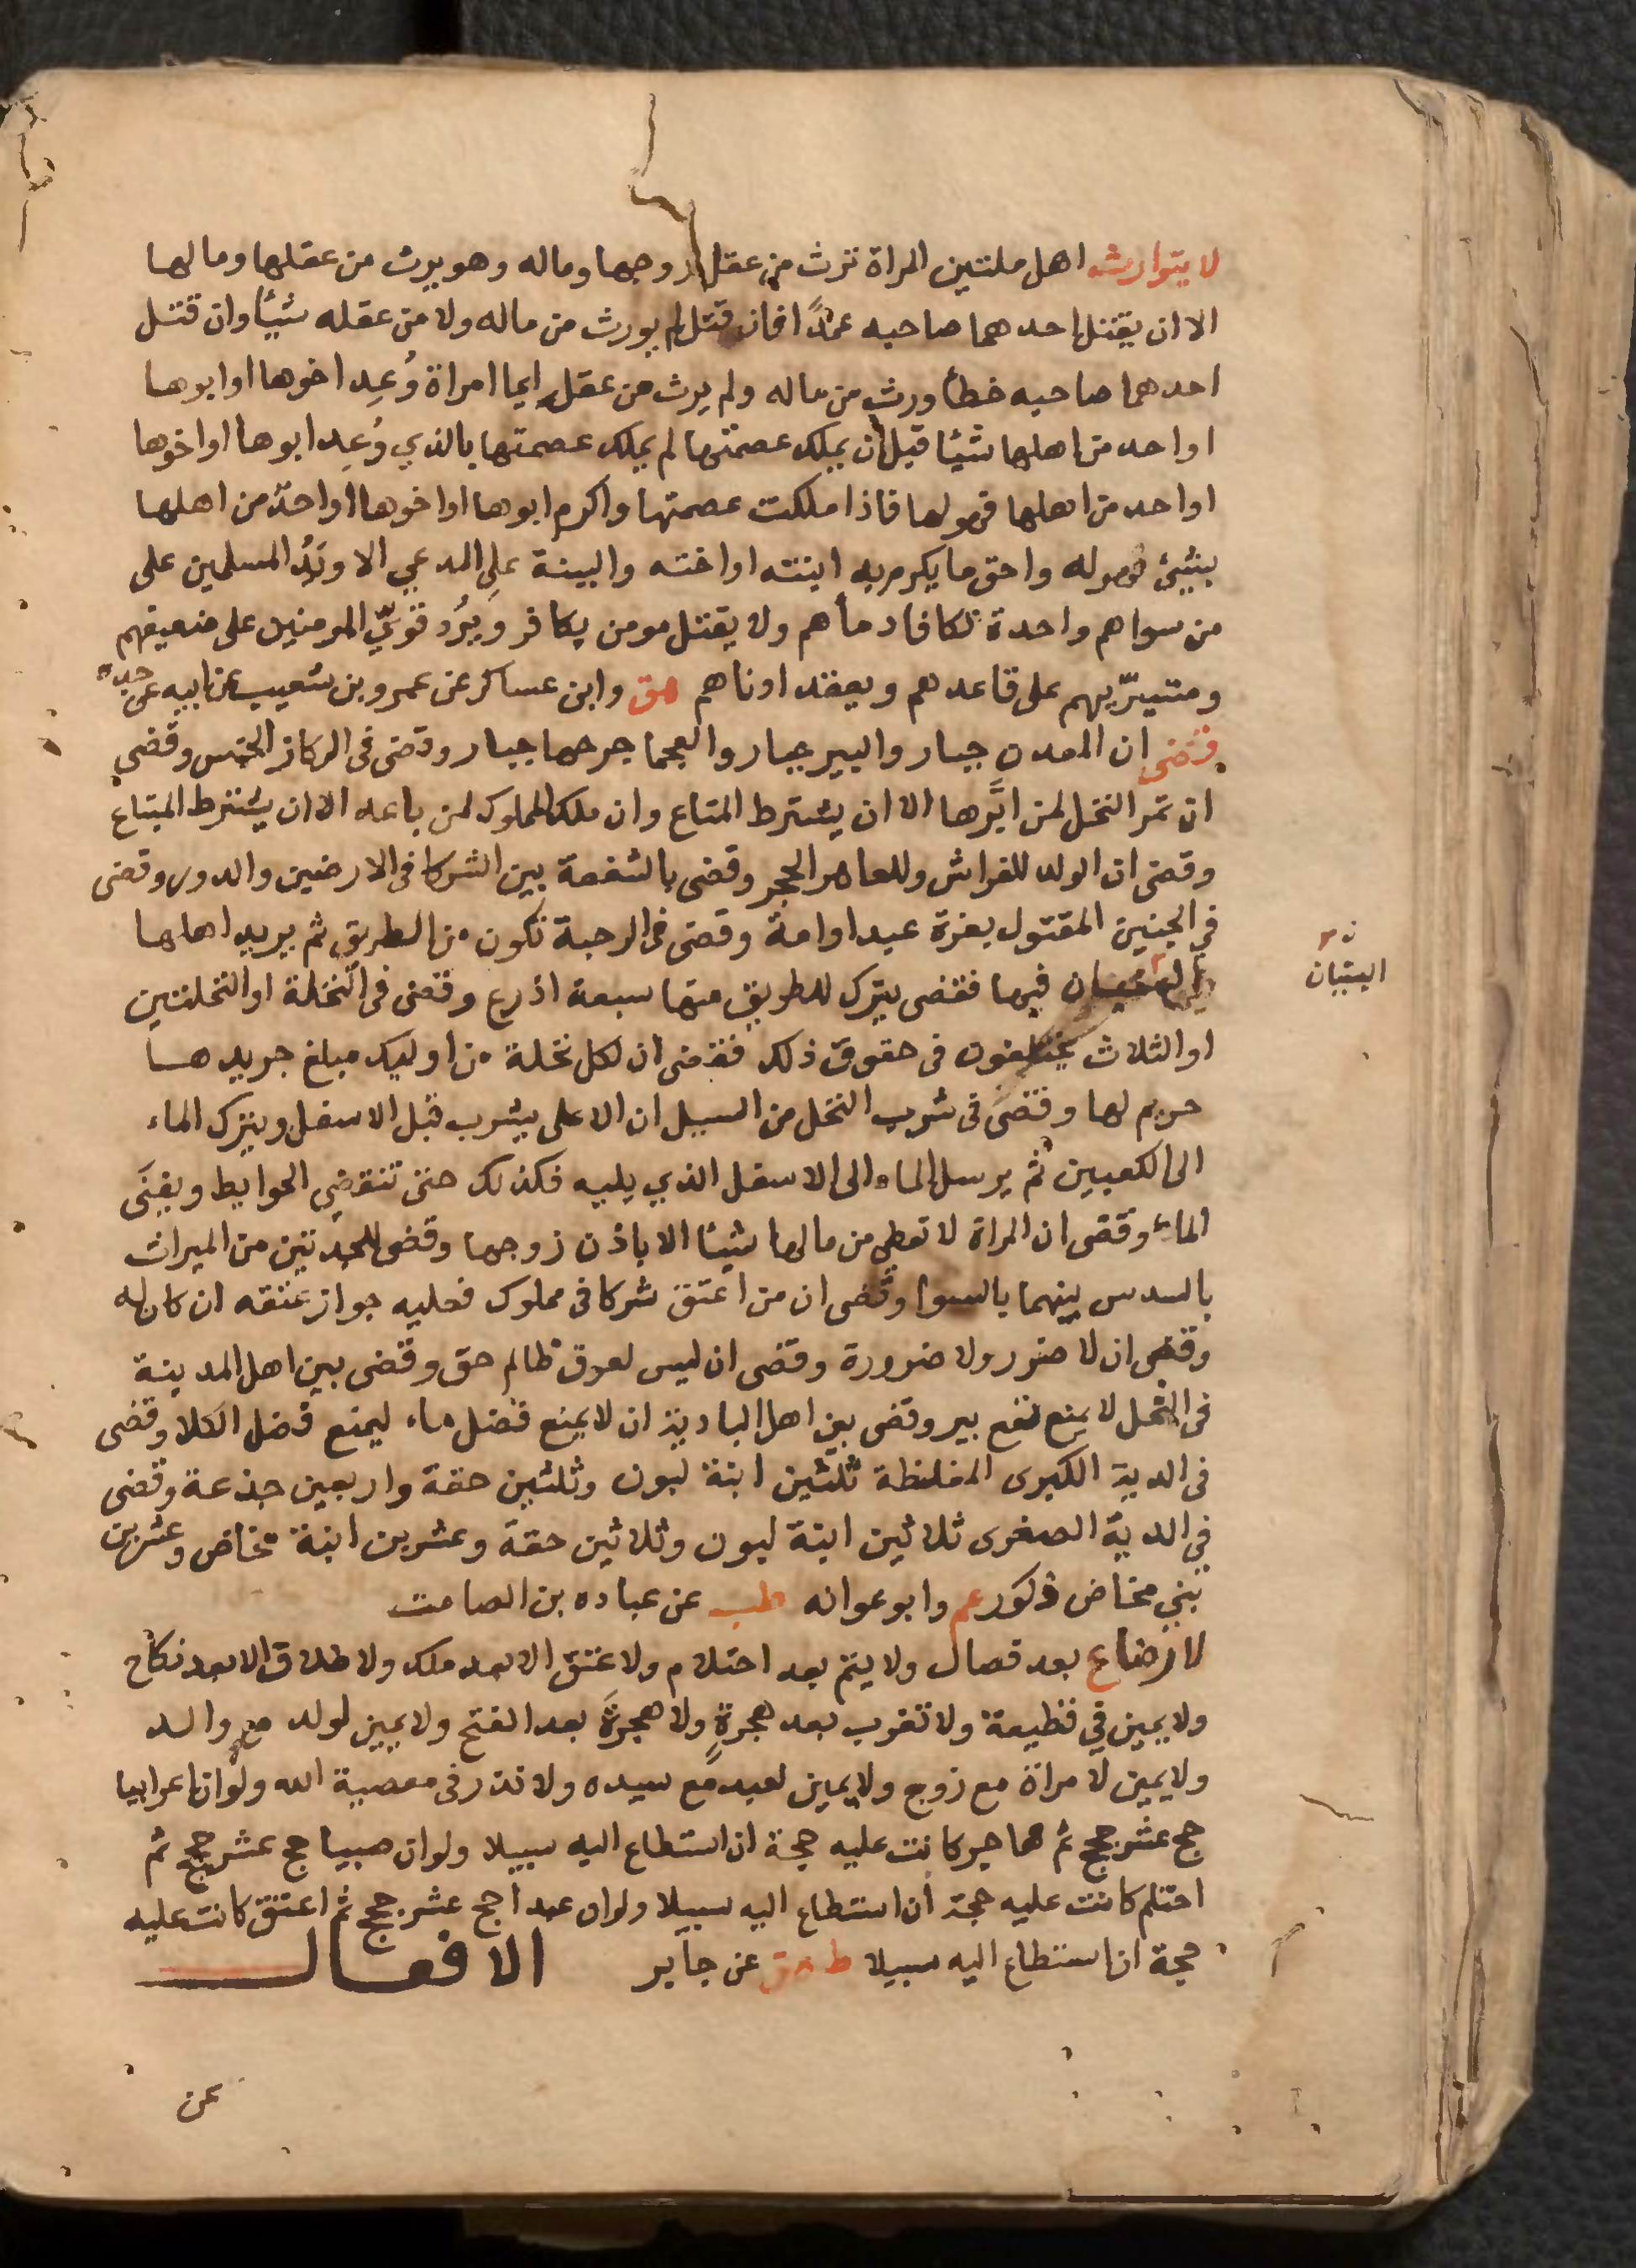 لا يتوارث اهل ملتين المراة ترث من عقل زوجها وماله وهو يرث من عقلها ومالها
الا ان يقتل احدهما صاحبه عمدًا فان قتل لم يورث من ماله ولا من عقله شيئا وان قتل
احدهما صاحبه خطأ ورث من ماله ولم يرث من عقله ايما امراة وُعِد اخوها او ابوها
او احد من اهلها شيئا قبل ان يملك عصمتها لم يملك عصمتها بالذي وُعِد ابوها او اخوها
او احد من اهلها فهو لها فاذا ملكت عصمتها واكرم ابوها او اخوها او احد من اهلها
بشيئ فهو له واحق ما يكرم به ابنته او اخته والبينة على المدعي الا ويَدُ المسلمين على
من سواهم واحدة تكافا دمأهم ولا يقتل مومن بكافر ويُرد قويّ المومنين على ضعيفهم
ومتسرّيهم على قاعدهم ويعقد ادناهم هق وابن عساكر عن عمرو بن شعيب عن ابيه عن جده
قضى ان المعدن جبار والبير جبار والعجما جرحها جبار وقضى فى الركاز الخمس وقضى
ان تمر النخل لمن ابَّرها الا ان يشترط المتاع وان ملك المملوك لمن باعه الا ان يشترط المبتاع
وقضى ان الولد للفراش وللعاهر الحجر وقضى بالشفعة بين الشركا فى الارضين والدور وقضى
في الجنين المقتول بغرة عبد او امة وقضى فى الرحبة تكون من الطريق ثم يريد اهلها
البنيان فيها فقضى يترك للطريق منها سبعة اذرع وقضى فى النخلة او النخلتين
او الثلاث يختلفون فى حقوق ذلك فقضى ان لكل نخلة من اوليك مبلغ جريدها
حريم لها وقضى فى شرب النخل من السيل ان الاعلى يشرب قبل الاسفل ويترك الماء
الى الكعبين ثم يرسل الماء الى الاسفل الذي يليه فكذلك حتى تنقضي الحوايط ويفنَى
الماء وقضى ان المراة لا تعطي من مالها شيئا الا باذن زوجها وقضى للجدتين من الميراث
بالسدس بينهما بالسوا وقضى ان من اعتق شركا فى مملوك فعليه جواز عتقه ان كان له
وقضى ان لا ضرر ولا ضرورة وقضى ان ليس لعرق ظالم حق وقضى بين اهل المدينة
فى النخل لا يمنع نفع بير وقضى بين اهل البادية ان لا يمنع فضل ماء ليمنع فضل الكلا وقضى
فى الدية الكبرى المغلظة ثلثين ابنة لبون وثلثين حقة واربعين جذعة وقضى
في الدية الصغرى ثلاثين ابنة لبون وثلاثين حقة وعشرين ابنة مخاض وعشرين
بني مخاض ذكور عم وابو عوانه طب عن عباده بن الصامت
لا رضاع بعد فصال ولا يتم بعد احتلام ولا عتق الا بعد ملك ولا طلاق الا بعد نكاح
ولا يمين في قطيعة ولا تعرب بعد هجرةٍ ولا هجرةَ بعد الفتح ولا يمين لولد مع والد
ولا يمين لامراة مع زوج ولا يمين لعبد مع سيده ولا نذر فى معصية الله ولو ان اعرابيا
حج عشر حجج ثم هاجر كانت عليه حجة ان استطاع اليه سبيلا ولو ان صبيا حج عشر حجج ثم
احتلم كانت عليه حجة ان استطاع اليه سبيلا ولو ان عبدا حج عشر حجج ثم اعتق كانت عليه
حجة ان استطاع اليه سبيلا ط هق عن جابر الافعال
البنيان
عن